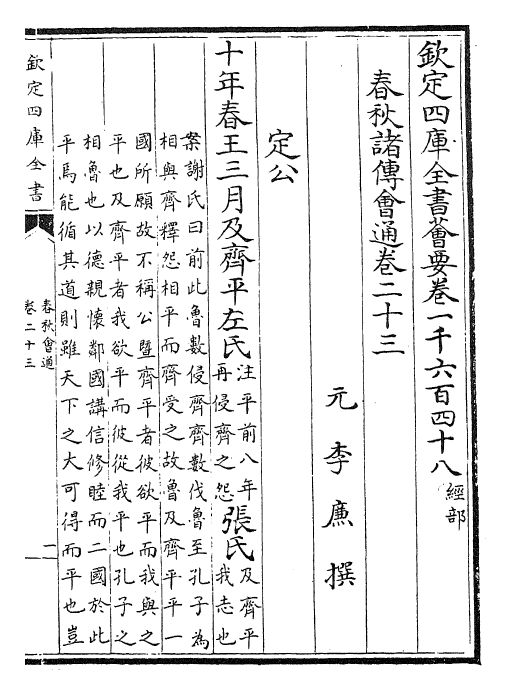 欽定四庫全書薈要卷一千六百四十八 經部
春秋諸傳會通卷二十三
元 李廉 撰
定公
十年春王三月及齊平左氏 注平前八年再侵齊之怨 張氏 及齊平我志也
案謝氏曰前此魯數侵齊齊數伐魯至孔子為
相與齊釋怨相平而齊受之故魯及齊平平一
國所願故不稱公暨齊平者彼欲平而我與之
平也及齊平者我欲平而彼從我平也孔子之
相魯也以德親懷鄰國講信修睦而二國於此
平焉能循其道則雖天下之大可得而平也豈
欽定四庫全書
春秋會通
卷二十三
一